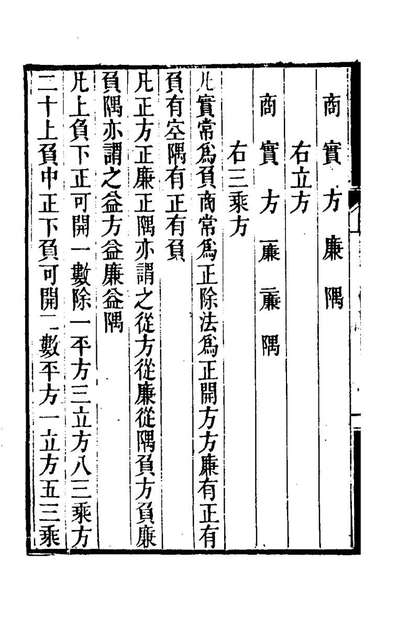 商實方廉隅
右立方
商實方一廉二廉隅
右三乘方
凡實常爲負商常爲正除法爲正開方方廉有正有
負有空隅有正有負
凡正方正廉正隅亦謂之從方從廉從隅負方負廉
負隅亦謂之益方益廉益隅
凡上負下正可開一數除一平方三立方八三乘方
二十上負中正下負可開二數平方一立方五三乘